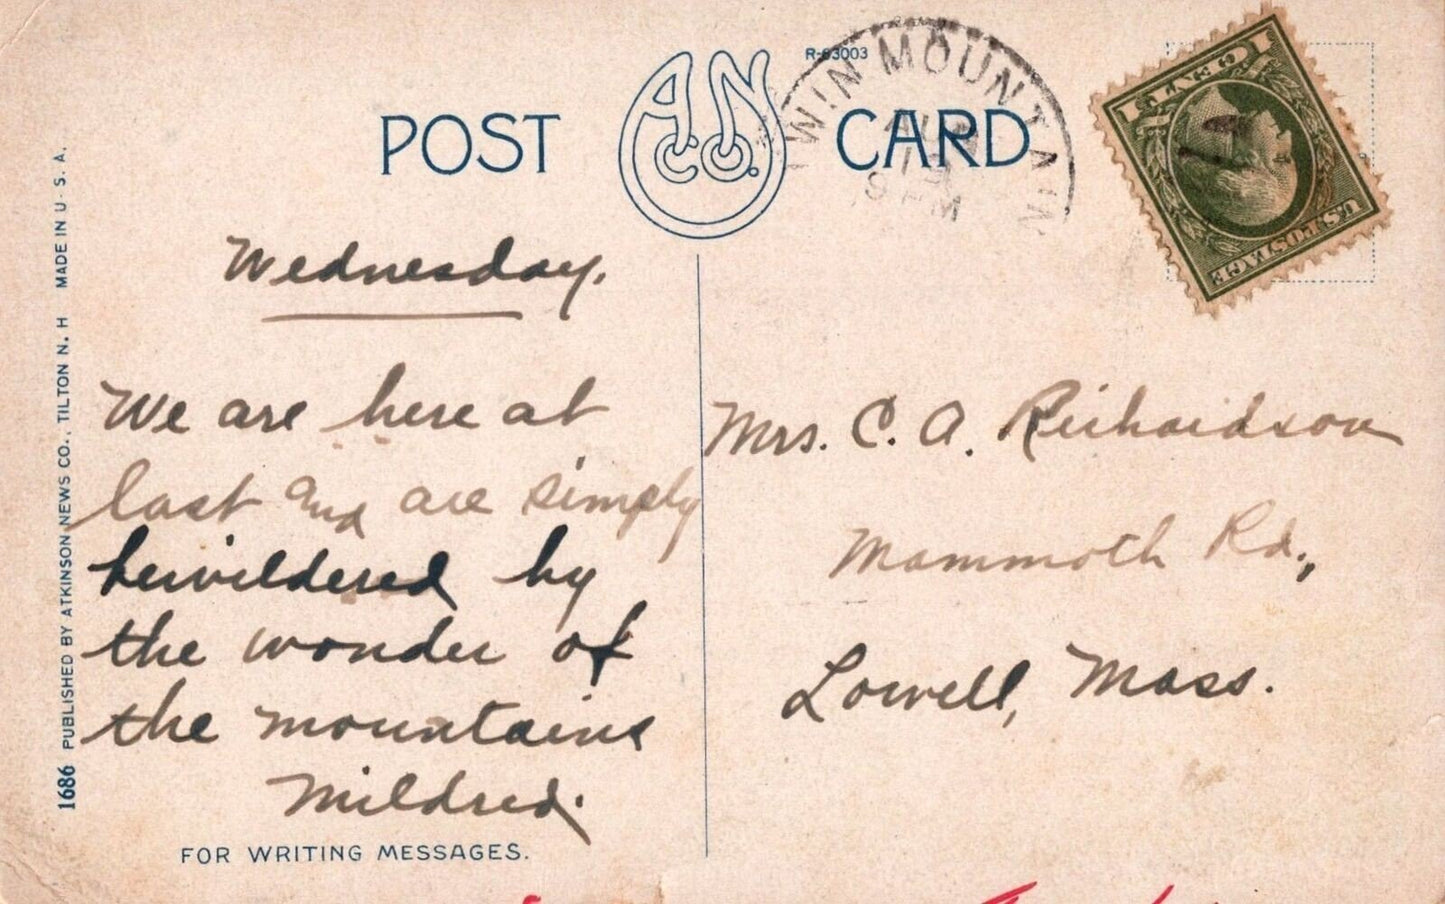 POST CARD
A.N. CO.
R-63003
TWIN MOUNTAIN
AUG
9 PM
1 CENT 1
U.S. POSTAGE
Wednesday.
We are here at
last and are simply
bewildered by
the wonder of
the mountains
Mildred.
FOR WRITING MESSAGES.
Mrs. C. A. Richardson
Mammoth Rd.,
Lowell, Mass.
1686 PUBLISHED BY ATKINSON NEWS CO., TILTON N. H MADE IN U. S. A.